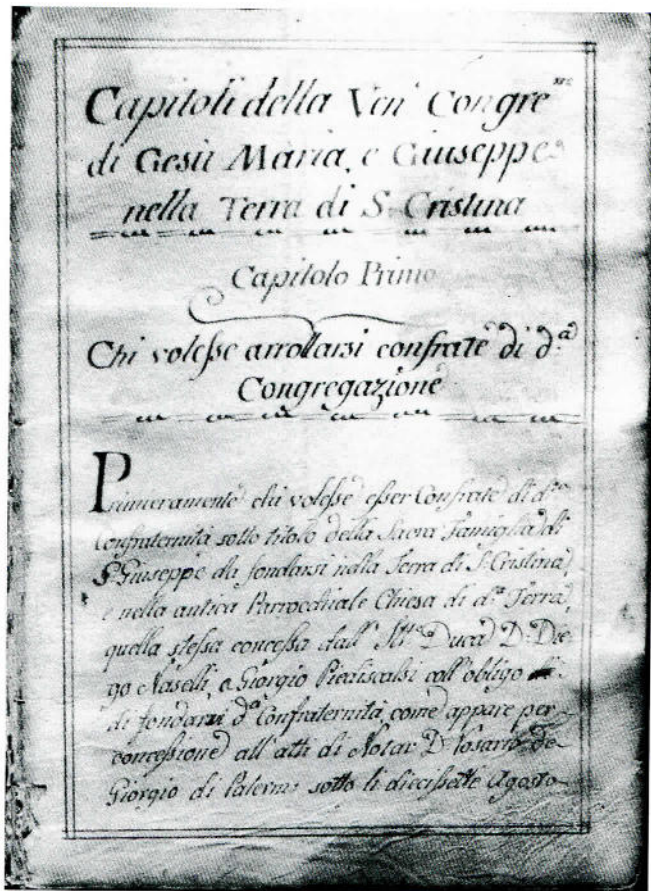 Capitoli della Ven' Congre.ne
di Gesù Maria, e Giuseppe
nella Terra di S. Cristina
Capitolo Primo
Chi volesse arrollarsi confrate di d.a
Congregazione
Primieramente chi volesse esser Confrate di d.a
Confraternita sotto titolo della Sacra Famiglia di
S. Giuseppe da fondarsi nella Terra di S. Cristina,
e nella antica Parrocchiale Chiesa di d.a Terra,
quella stessa concessa dall' Duca D. Die
go Naselli, a Giorgio Piediscalsi coll'obligo
di fondarsi d.a Confraternita, come appare per
concessione all'atti di Notar D. Rosario de
Giorgio di Palermo sotto li diecissette Agosto